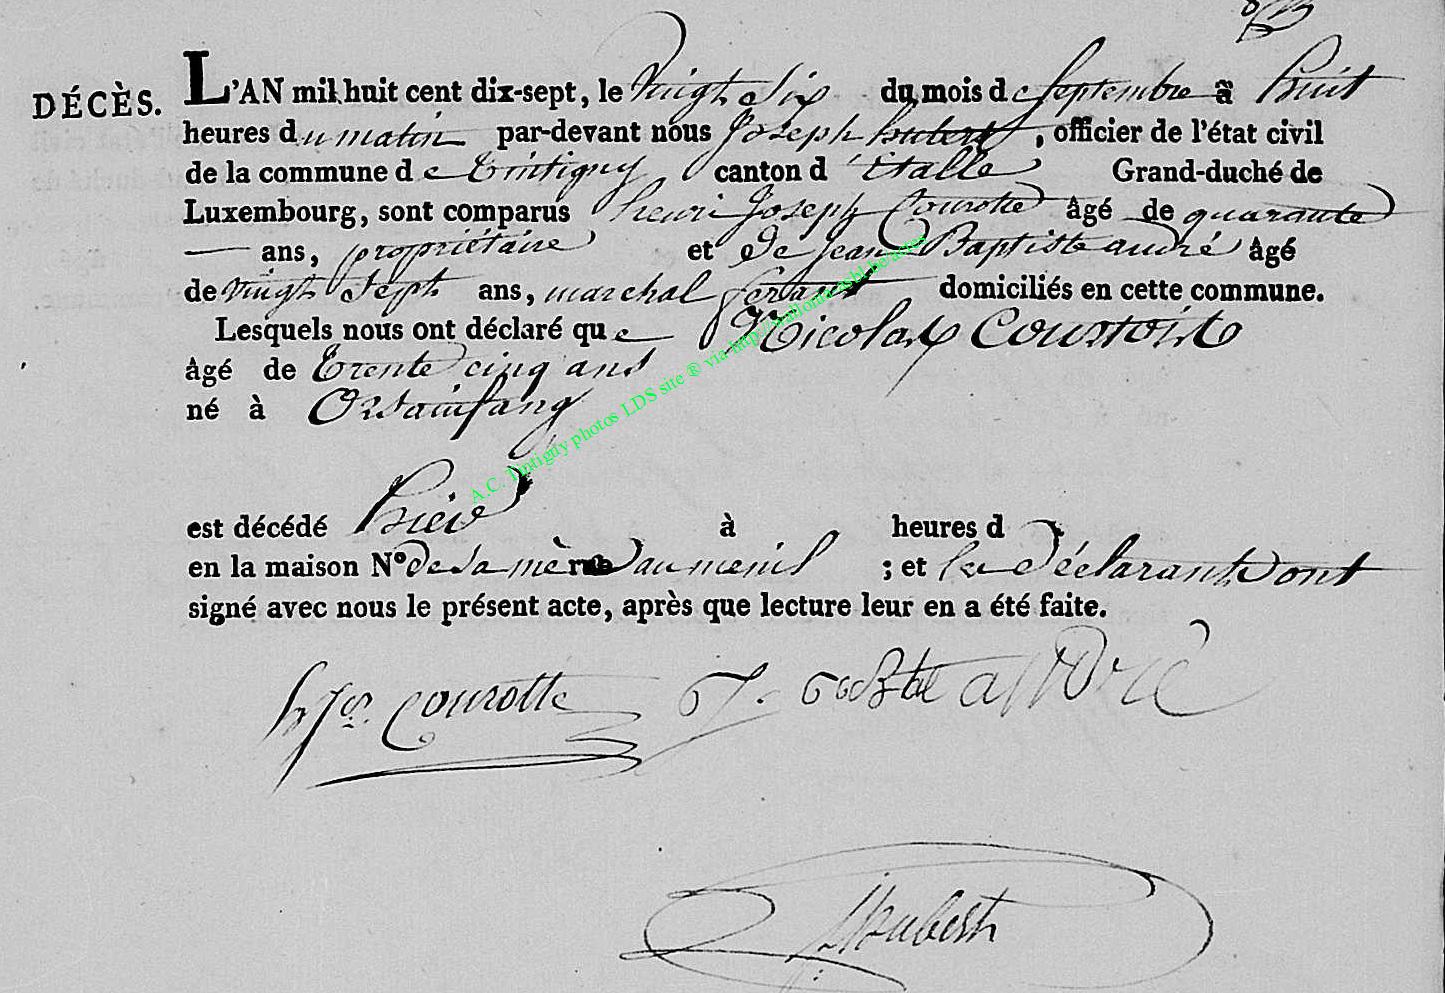 DÉCÈS.
L'AN mil huit cent dix-sept, le vingt six du mois de Septembre à huit
heures du matin par-devant nous Joseph hubert, officier de l'état civil
de la commune de tintigny canton d'Etalle Grand-duché de
Luxembourg, sont comparus henri Joseph Courotte âgé de quarante
— ans, propriétaire et de jean Baptiste andré âgé
de vingt Sept ans, marchal ferant domiciliés en cette commune.
Lesquels nous ont déclaré que Nicolas Courtois
âgé de trente cinq ans
né à Orsainfang
est décédé hier à heures d
en la maison N° de sa mère au menil ; et les déclarants ont
signé avec nous le présent acte, après que lecture leur en a été faite.
h Jos. Courotte J. andré
Hubert
A.C. Tintigny photos LDS site ® via http://wallonia.asbl.be/actes